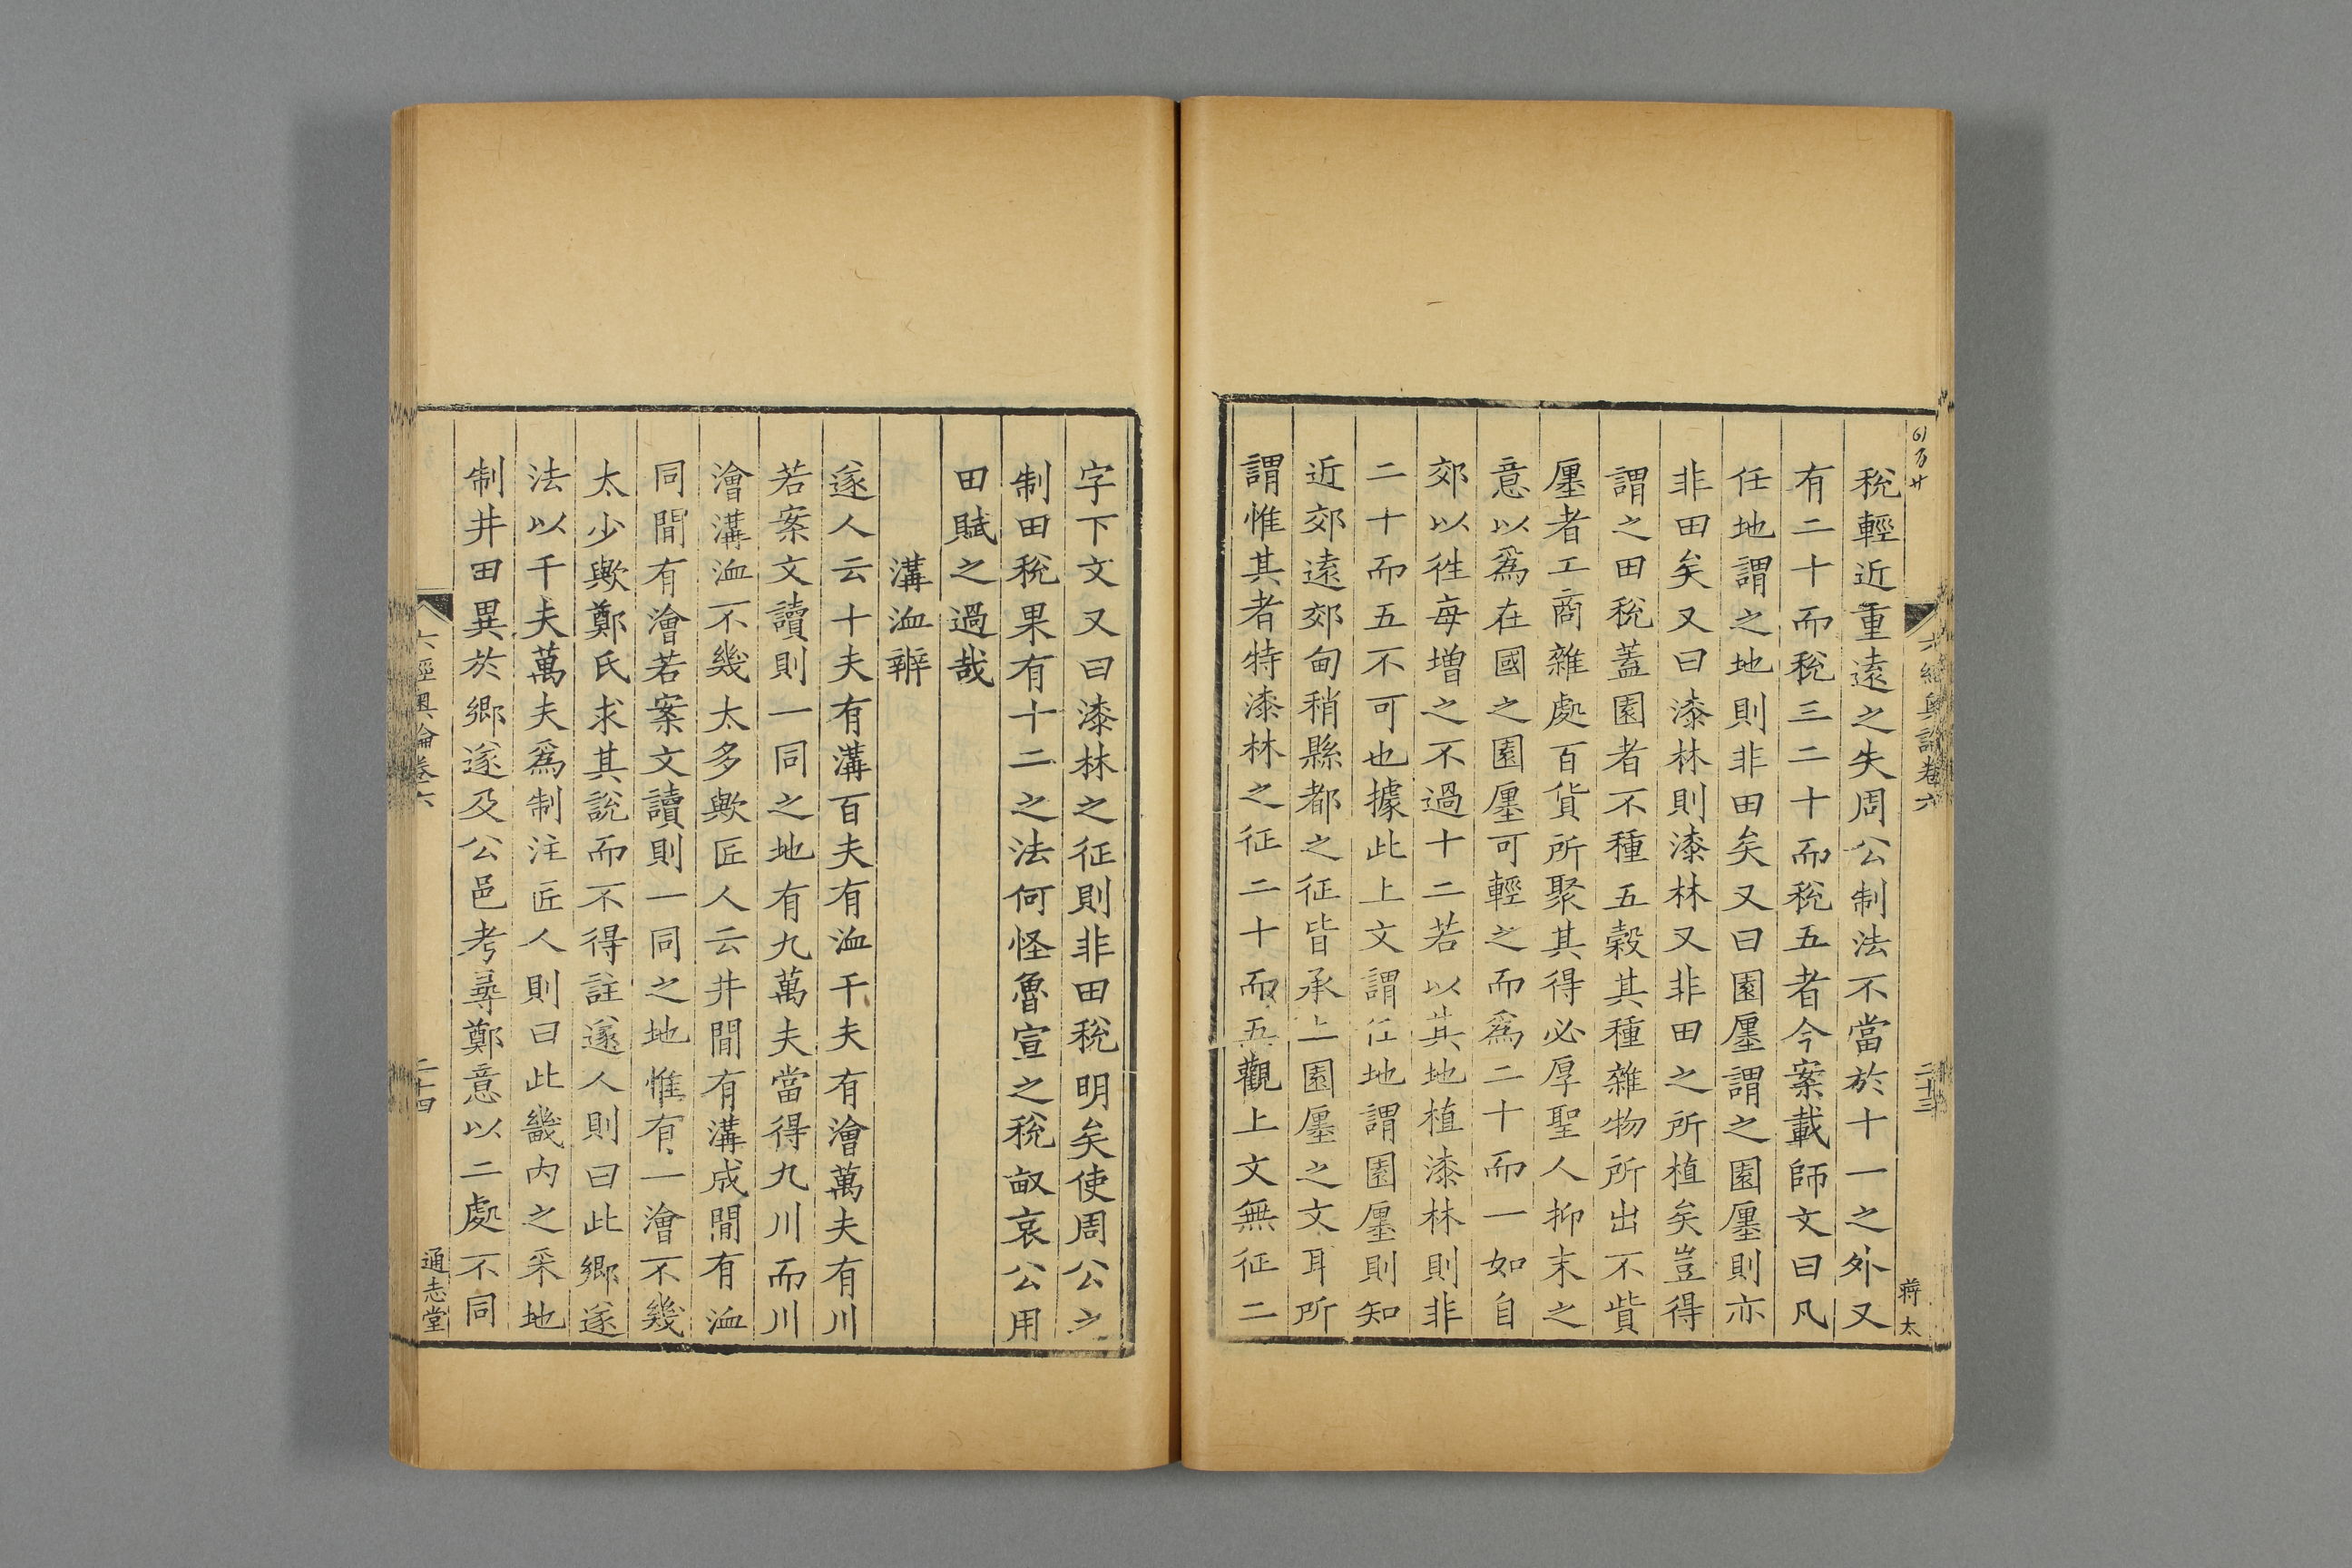 稅輕近重遠之失周公制法不當於十一之外又
有二十而稅三二十而稅五者今案載師文曰凡
任地謂之地則非田矣又曰園廛謂之園廛則亦
非田矣又曰漆林則漆林又非田之所植矣豈得
謂之田稅蓋園者不種五穀其種雜物所出不貲
廛者工商雜處百貨所聚其得必厚聖人抑末之
意以爲在國之園廛可輕之而爲二十而一如自
郊以徃每增之不過十二若以其地植漆林則非
二十而五不可也據此上文謂任地謂園廛則知
近郊遠郊甸稍縣都之征皆承上園廛之文耳所
謂惟其者特漆林之征二十而五觀上文無征二
六經奥論卷六
二十三
蔣太
字下文又曰漆林之征則非田稅明矣使周公之
制田稅果有十二之法何怪魯宣之稅畝哀公用
田賦之過哉
溝洫辨
遂人云十夫有溝百夫有洫千夫有澮萬夫有川
若案文讀則一同之地有九萬夫當得九川而川
澮溝洫不幾太多歟匠人云井間有溝成間有洫
同間有澮若案文讀則一同之地惟有一澮不幾
太少歟鄭氏求其說而不得註遂人則曰此鄉遂
法以千夫萬夫爲制注匠人則曰此畿内之采地
制井田異於鄉遂及公邑考尋鄭意以二處不同
六經奥論卷六
二十四
通志堂